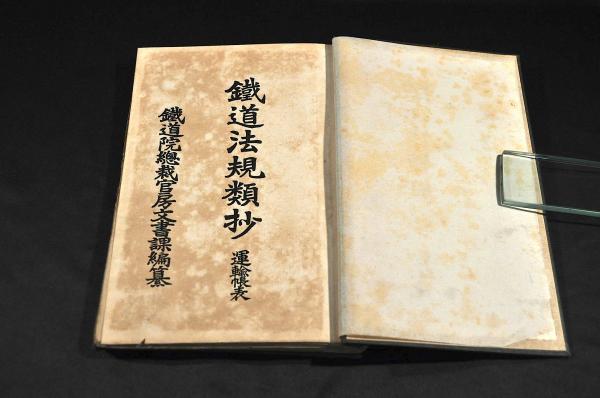 鐵道法規類抄 運輸帳表
鐵道院總裁官房文書課編纂